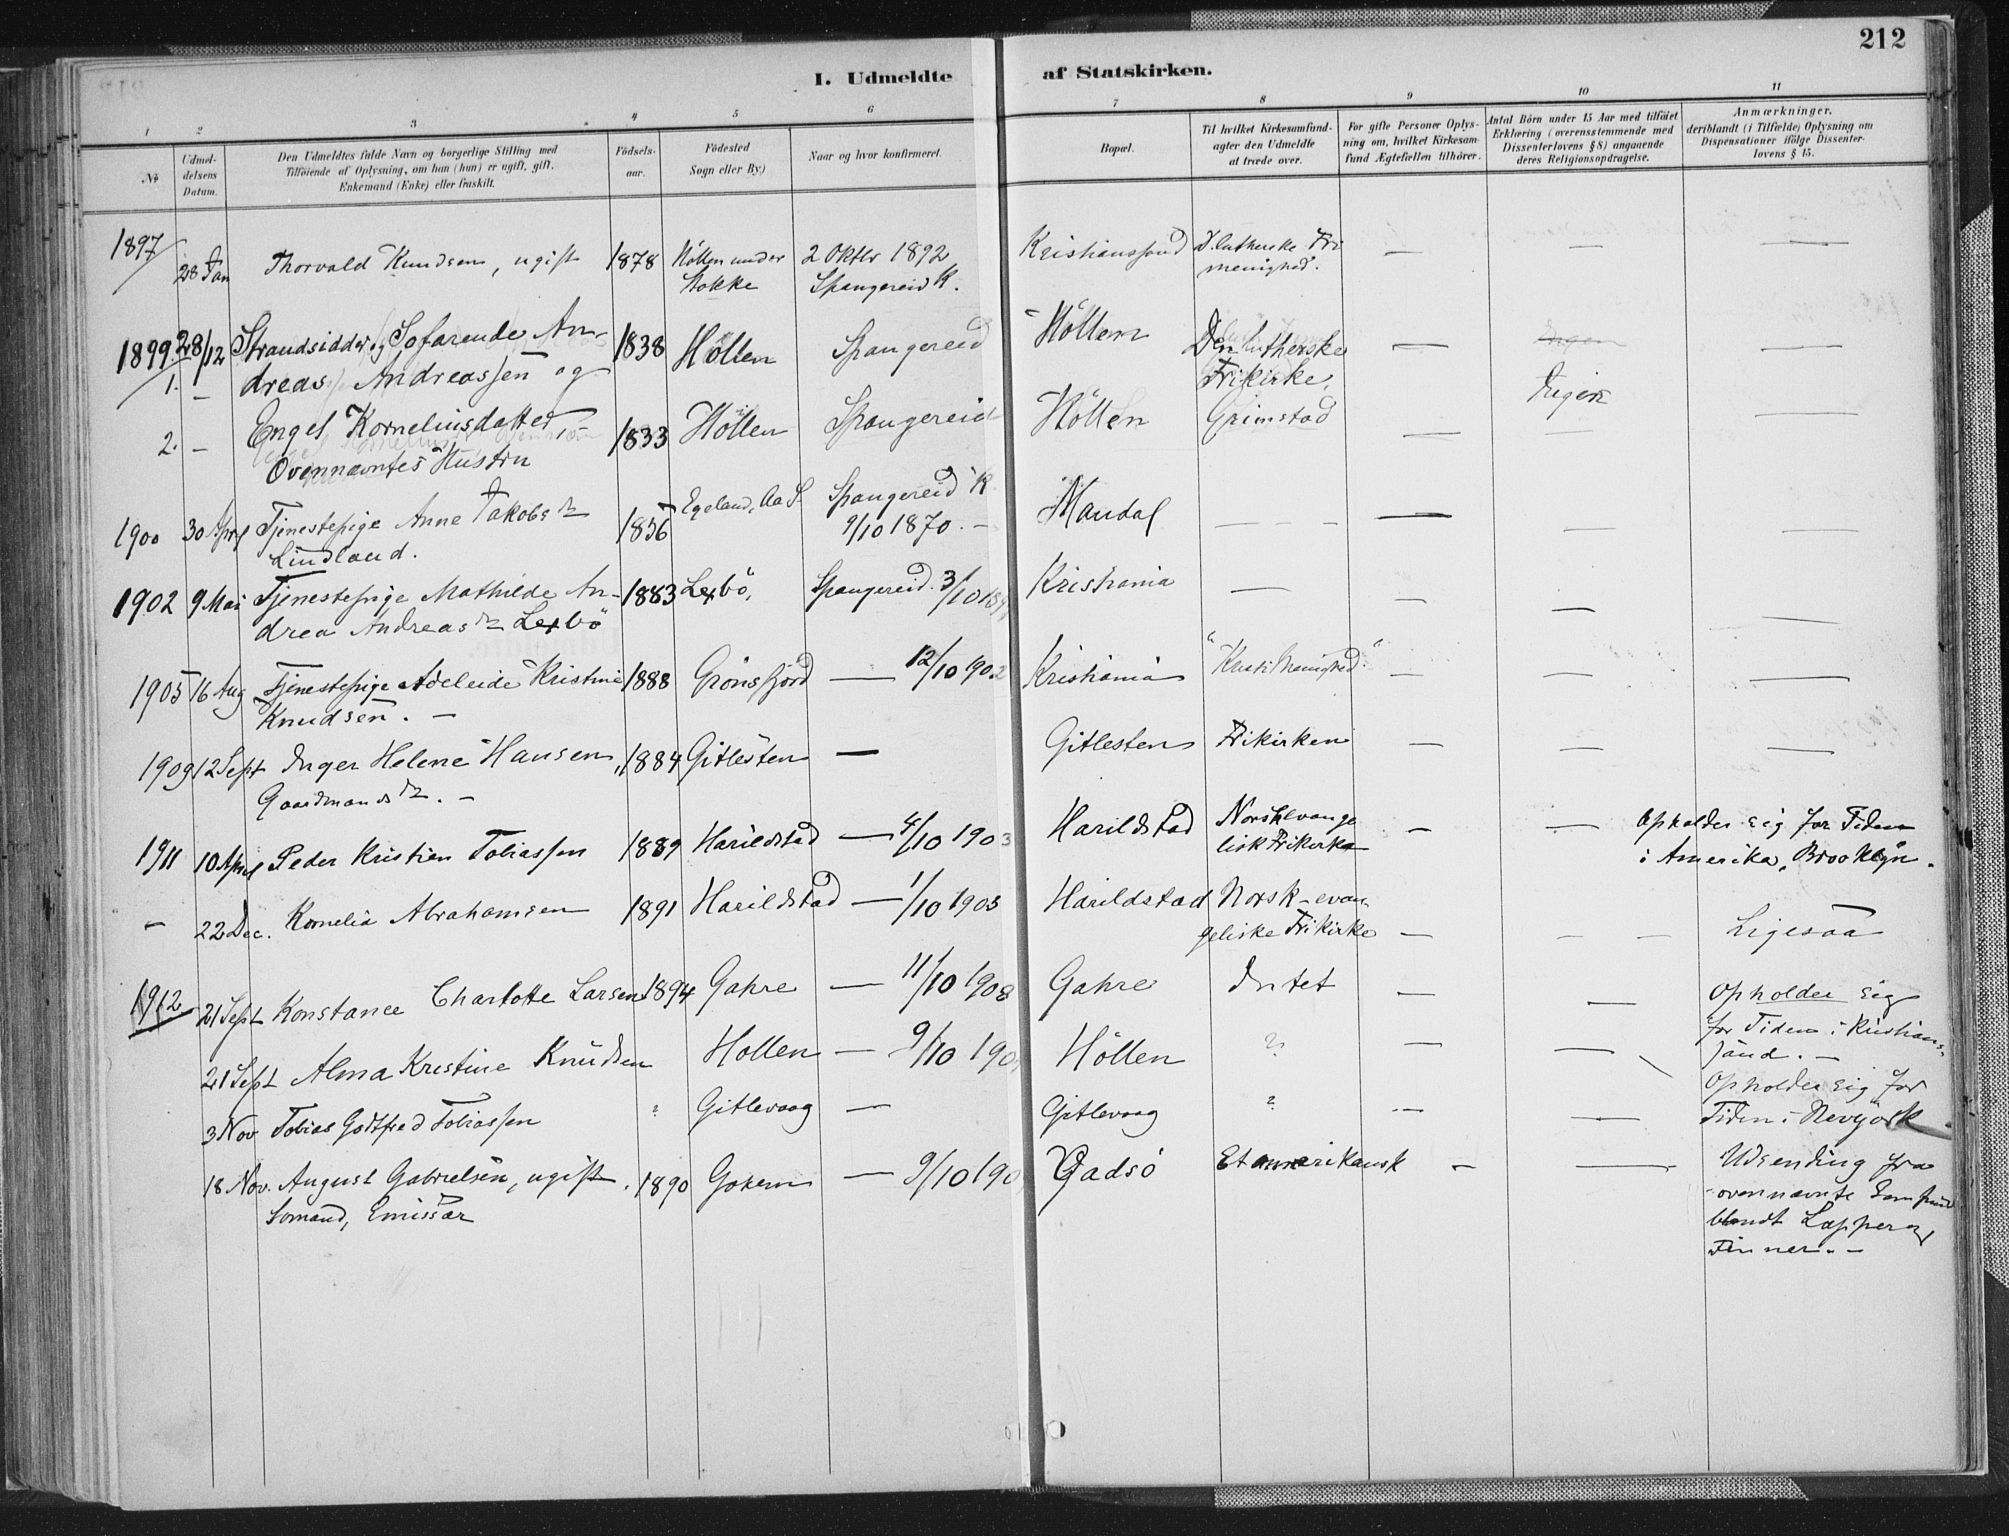 212
I. Udmeldte af Statskirken.
1 2 3 4 5 6 7 8 9 10 11
No
Udmel-
delsens
Datum.
Den Udmeldtes fulde Navn og borgerlige Stilling med
Tilföiende af Oplysning, om han (hun) er ugift, gift,
Enkemand (Enke) eller fraskilt.
Födsels-
aar.
Födested
Sogn eller By.)
Naar og hvor konfirmeret.
Bopæl.
Til hvilket Kirkesamfund
agter den Udmeldte
at træde over.
For gifte Personer Oplys-
ning om, hvilket Kirkesam-
fund Ægtefællen tilhörer.
Antal Börn under 15 Aar med tilföiet
Erklæring (overensstemmende med
Dissenterlovens § 8) angaaende
deres Religionsopdragelse.
Anmærkninger,
deriblandt (i Tilfælde) Oplysning om
Dispensationer ifölge Dissenter-
lovens § 15.
1897
28 Jan Thorvald Knudsen, ugift 1878 Höllen under 2 Oktbr 1892 Kristianssand D lutherske Fri — — —
Stokke Spangereid K. menighed.
1899 28/12 Strandsidder og Sofarende An- 1838 Höllen Spangereid Höllen Den lutherske — Ingen —
1. — dreas Andreassen og Frikirke,
2. — Engel Kornelinsdatter 1833 Höllen Spangereid Höllen Grimstad — Ingen —
Ovennævntes Hustru
1900 30 April Tjenestepige Anne Jakobsdr 1856 Egeland, Aa S. Spangereid K Mandal — — — —
Lindland. 9/10 1870. —
1902 9 Mai Tjenestepige Mathilde An- 1883 Lexbö, Spangereid 3/10 Kristiania — — — —
drea Andreasdr Lexbö
1905 16 Aug Tjenestepige Adeleide Kristine 1888 Grönsfjord — 12/10 1902 Kristiania "Kristi Menighed." — — —
Knudsen. —
1909 12 Sept Inger Helene Hansen, 1884 Gitlesten — Gitlesten Frikirken — — —
Gaardmandsdr. —
1911 10 April Peder Kristian Tobiassen 1889 Harildstad — 4/10 1903 Harildstad Norsk evange — — Opholder sig for Tiden
lisk Frikirke i Amerika, Brooklyn.
— 22 Dec. Kornelia Abrahamsen 1891 Harildstad — 1/10 1905 Harildstad Norsk-evan
geliske Frikirke — — — Ligesaa
1912 21 Sept Konstance Charlotte Larsen 1894 Gahre — 11/10 1908 Gahre Intet — — Opholder sig
for Tiden i Kristians-
sand. —
21 Sept Alma Kristine Knudsen Hollen — 9/10 190 Höllen ? — —
Opholder sig for
3 Nov Tobias Godtfred Tobiassen ? Gitlevaag — Gitlevaag ? — — Tiden i Newyork
18 Nov. August Gabrielsen, ugift. 1890 Gokem — 9/10 190 Vadsö Et amerikansk — — Udsending fra
Somand, Emissær ovennævnte Samfund
blandt Lapper og
Finner. —